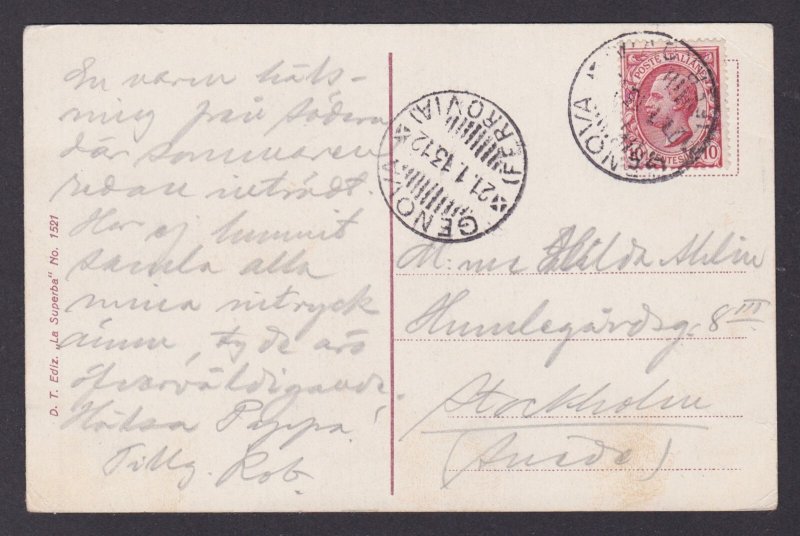 En varm häls-
ning från södern
där sommaren
redan inträdt.
Har ej hunnit
samla alla
mina intryck
ännu, ty de äro
öfverväldigande.
Hälsa Pappa!
Tilly. Rob.
D. T. Ediz. „La Superba" No. 1521
GENOVA (FERROVIA)
21.1.13-12
POSTE ITALIANE
10
GENOVA
Mme Hilda Ahlin
Humlegårdsg. 8 III
Stockholm
(Suède)